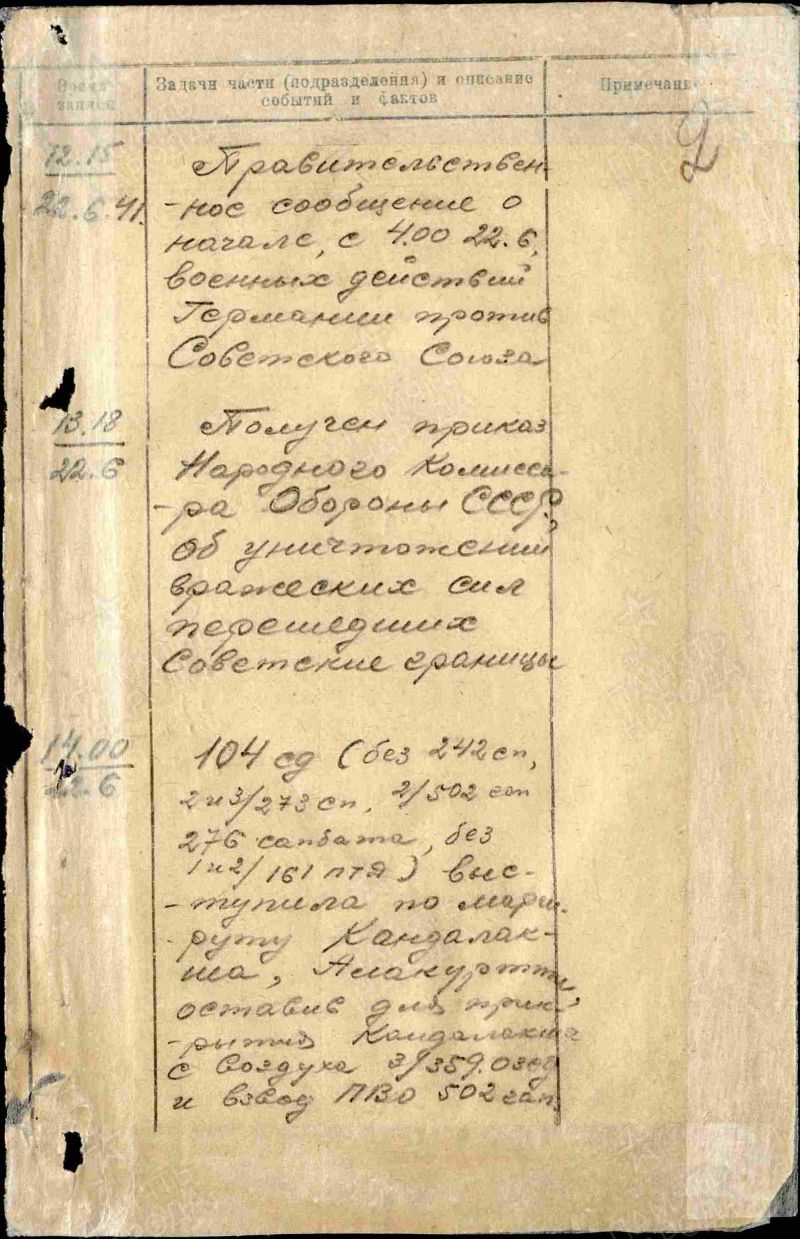 Время записи
Задачи части (подразделения) и описание
событий и фактов
Примечание
2
12.15
22.6.41.
Правительствен-
-ное сообщение о
начале, с 4.00 22.6,
военных действий
Германии против
Советского Союза
13.18
22.6
Получен приказ
Народного Комисса-
-ра Обороны СССР,
об уничтожении
вражеских сил
перешедших
Советские границы
14.00
22.6
104 сд (без 242 сп,
2 и 3/273 сп, 2/502 гап
276 сапбата, без
1 и 2/161 птд) выс-
-тупила по марш-
-руту Кандалак-
ша, Алакуртти,
оставив для прик-
-рытия Кандалакша
с воздуха 3/359.озад
и взвод ПВО 502 гап.